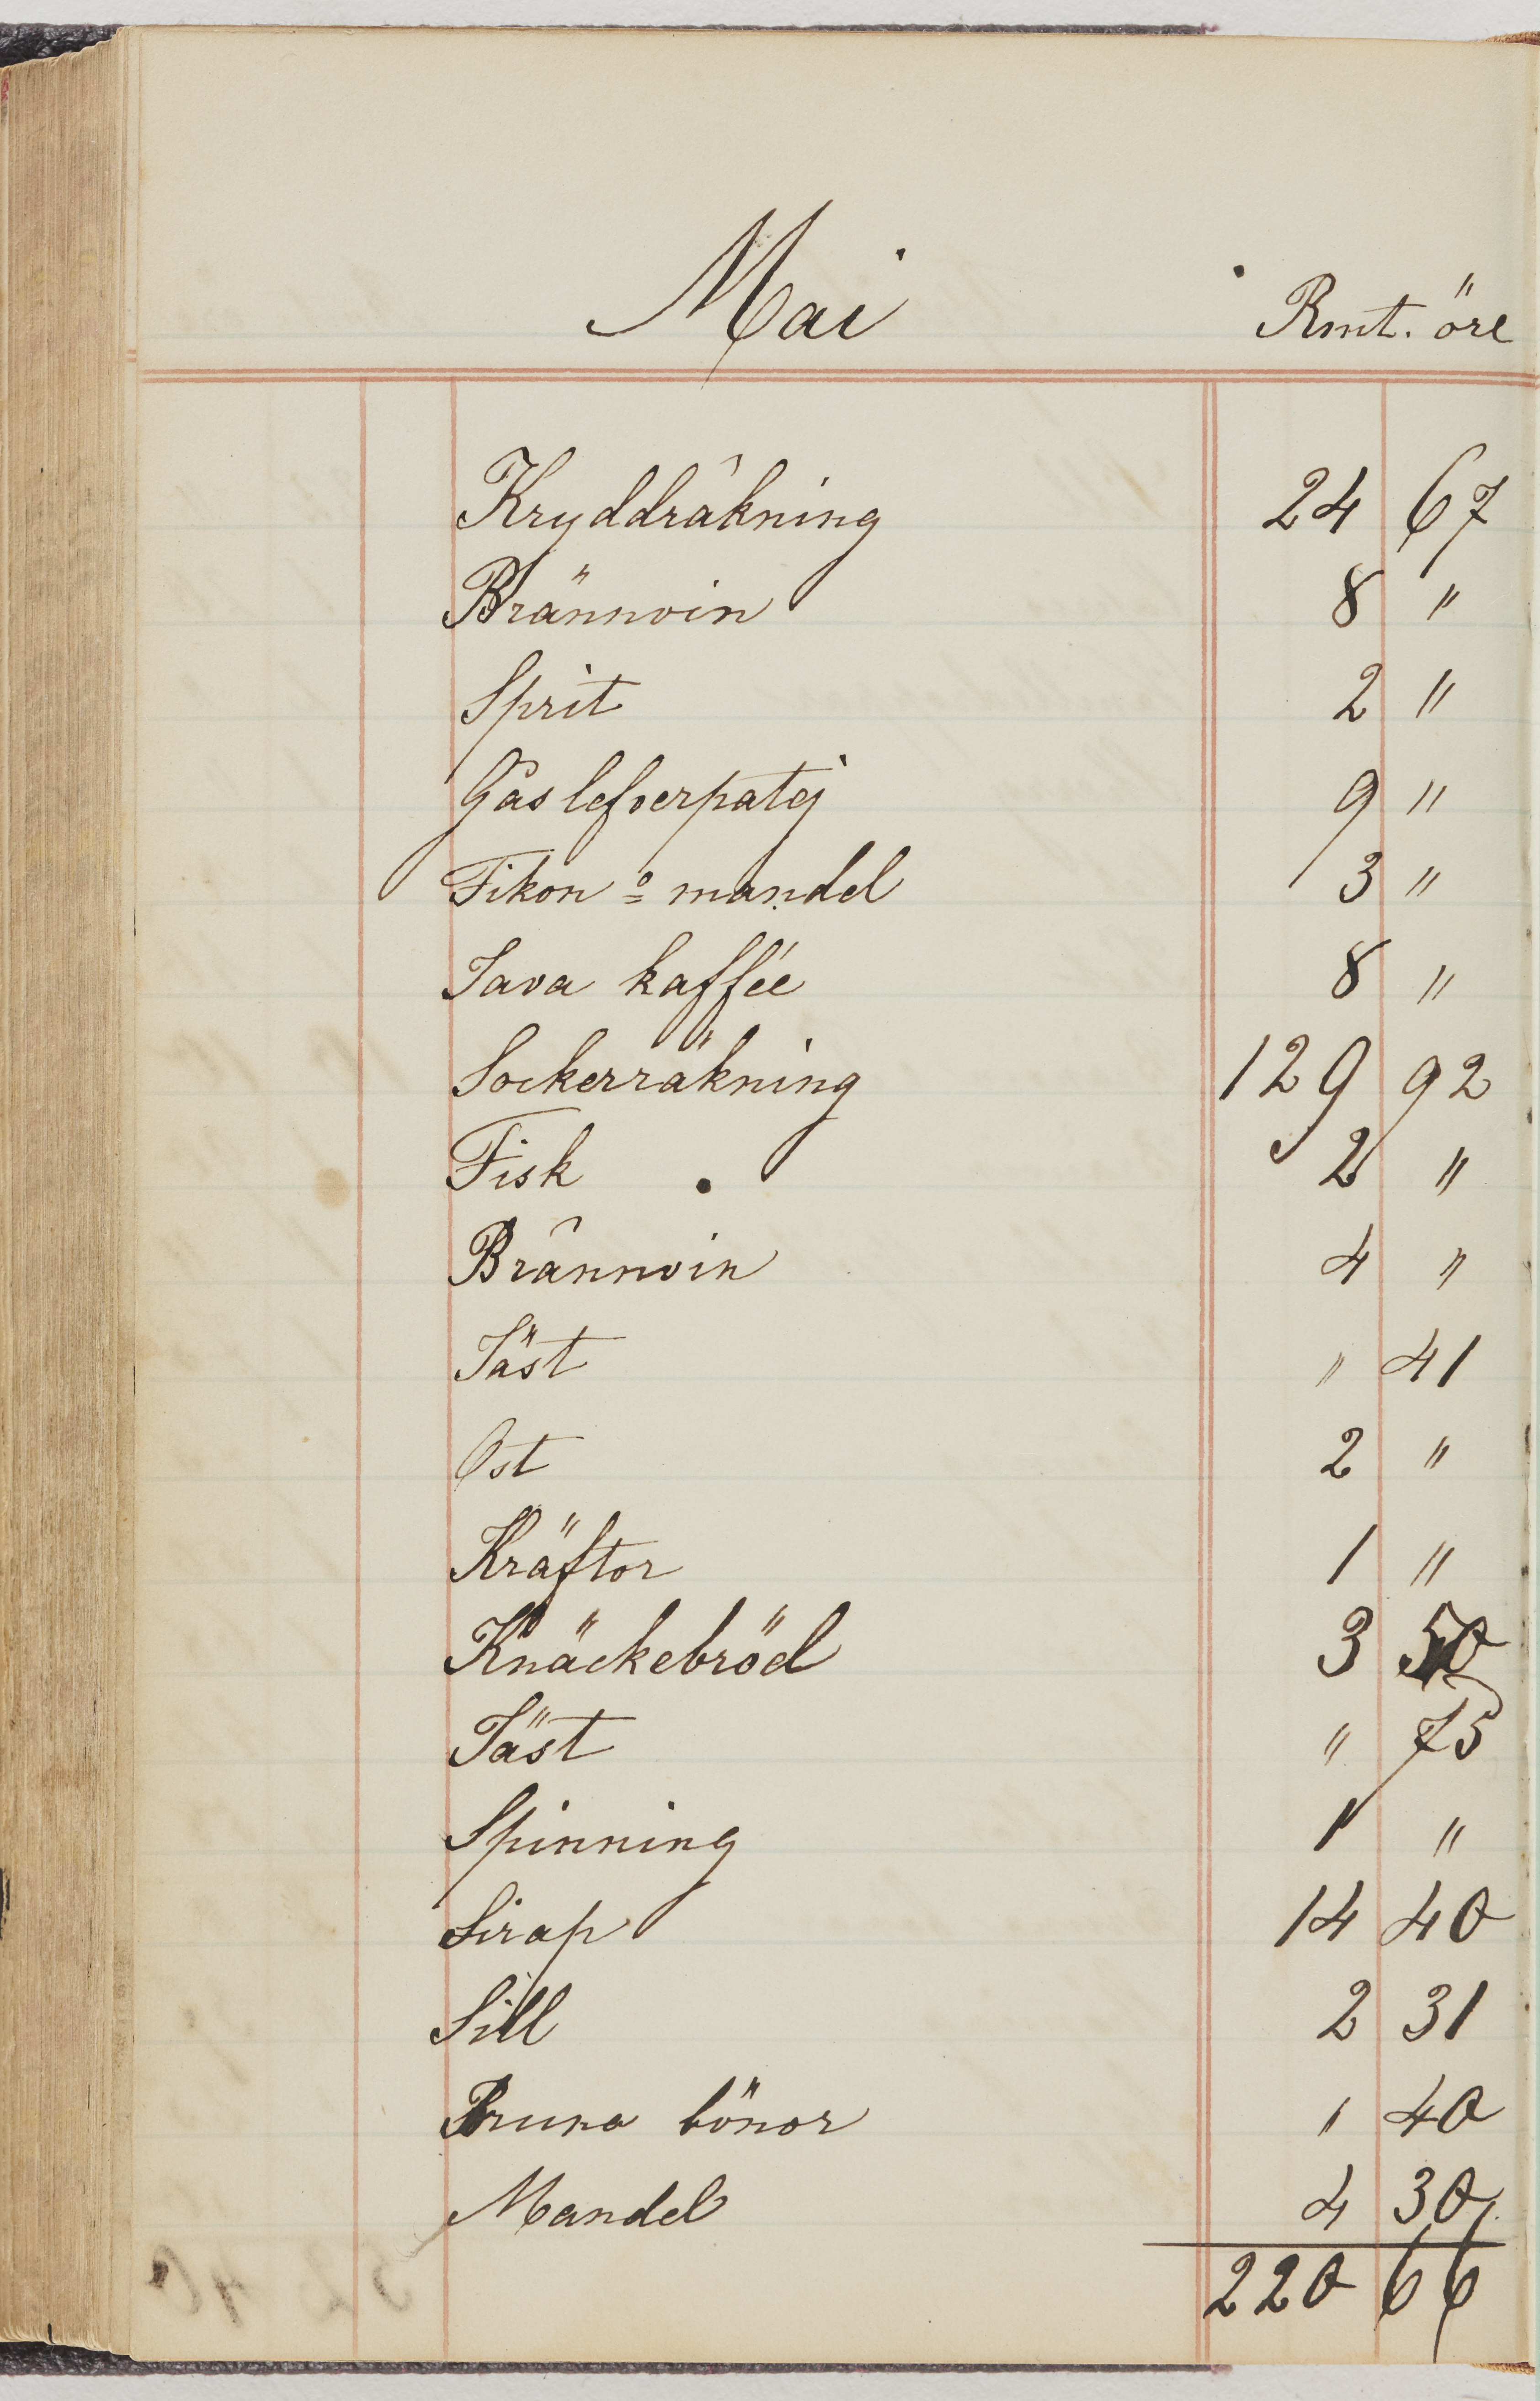 Mai Rmt. öre
Kryddräkning 24 67
Brännvin 8 "
Sprit 2 "
Gåslefverpatej 9 "
Fikon o mandel 3 "
Java kaffée 8 "
Sockerräkning 129 92
Fisk 2 "
Brännvin 4 "
Jäst " 41
Ost 2 "
Kräftor 1 "
Knäckebröd 3 50
Jäst " 75
Spinning 1 "
Sirap 14 40
Sill 2 31
Bruna bönor 1 40
Mandel 4 30
220 66